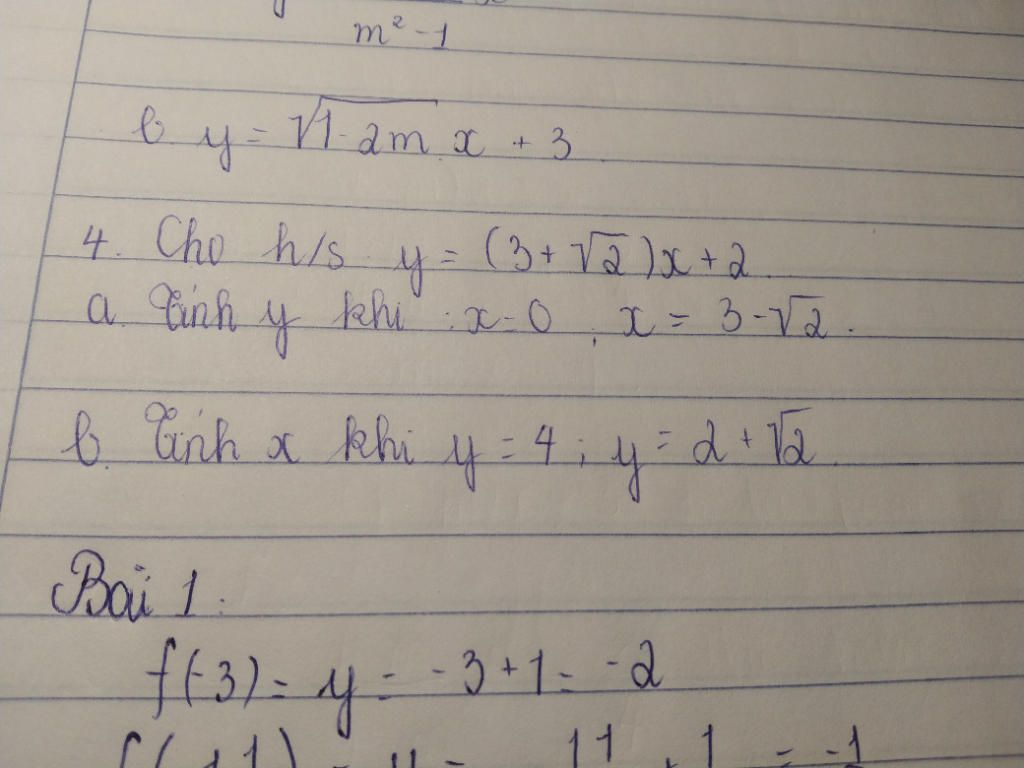 m² - 1
b. y = √1-2m x + 3
4. Cho h/s y = (3 + √2)x + 2.
a. Tính y khi : x = 0 ; x = 3 - √2.
b. Tính x khi y = 4 ; y = 2 + √2.
Bài 1:
f(-3) = y = -3 + 1 = -2